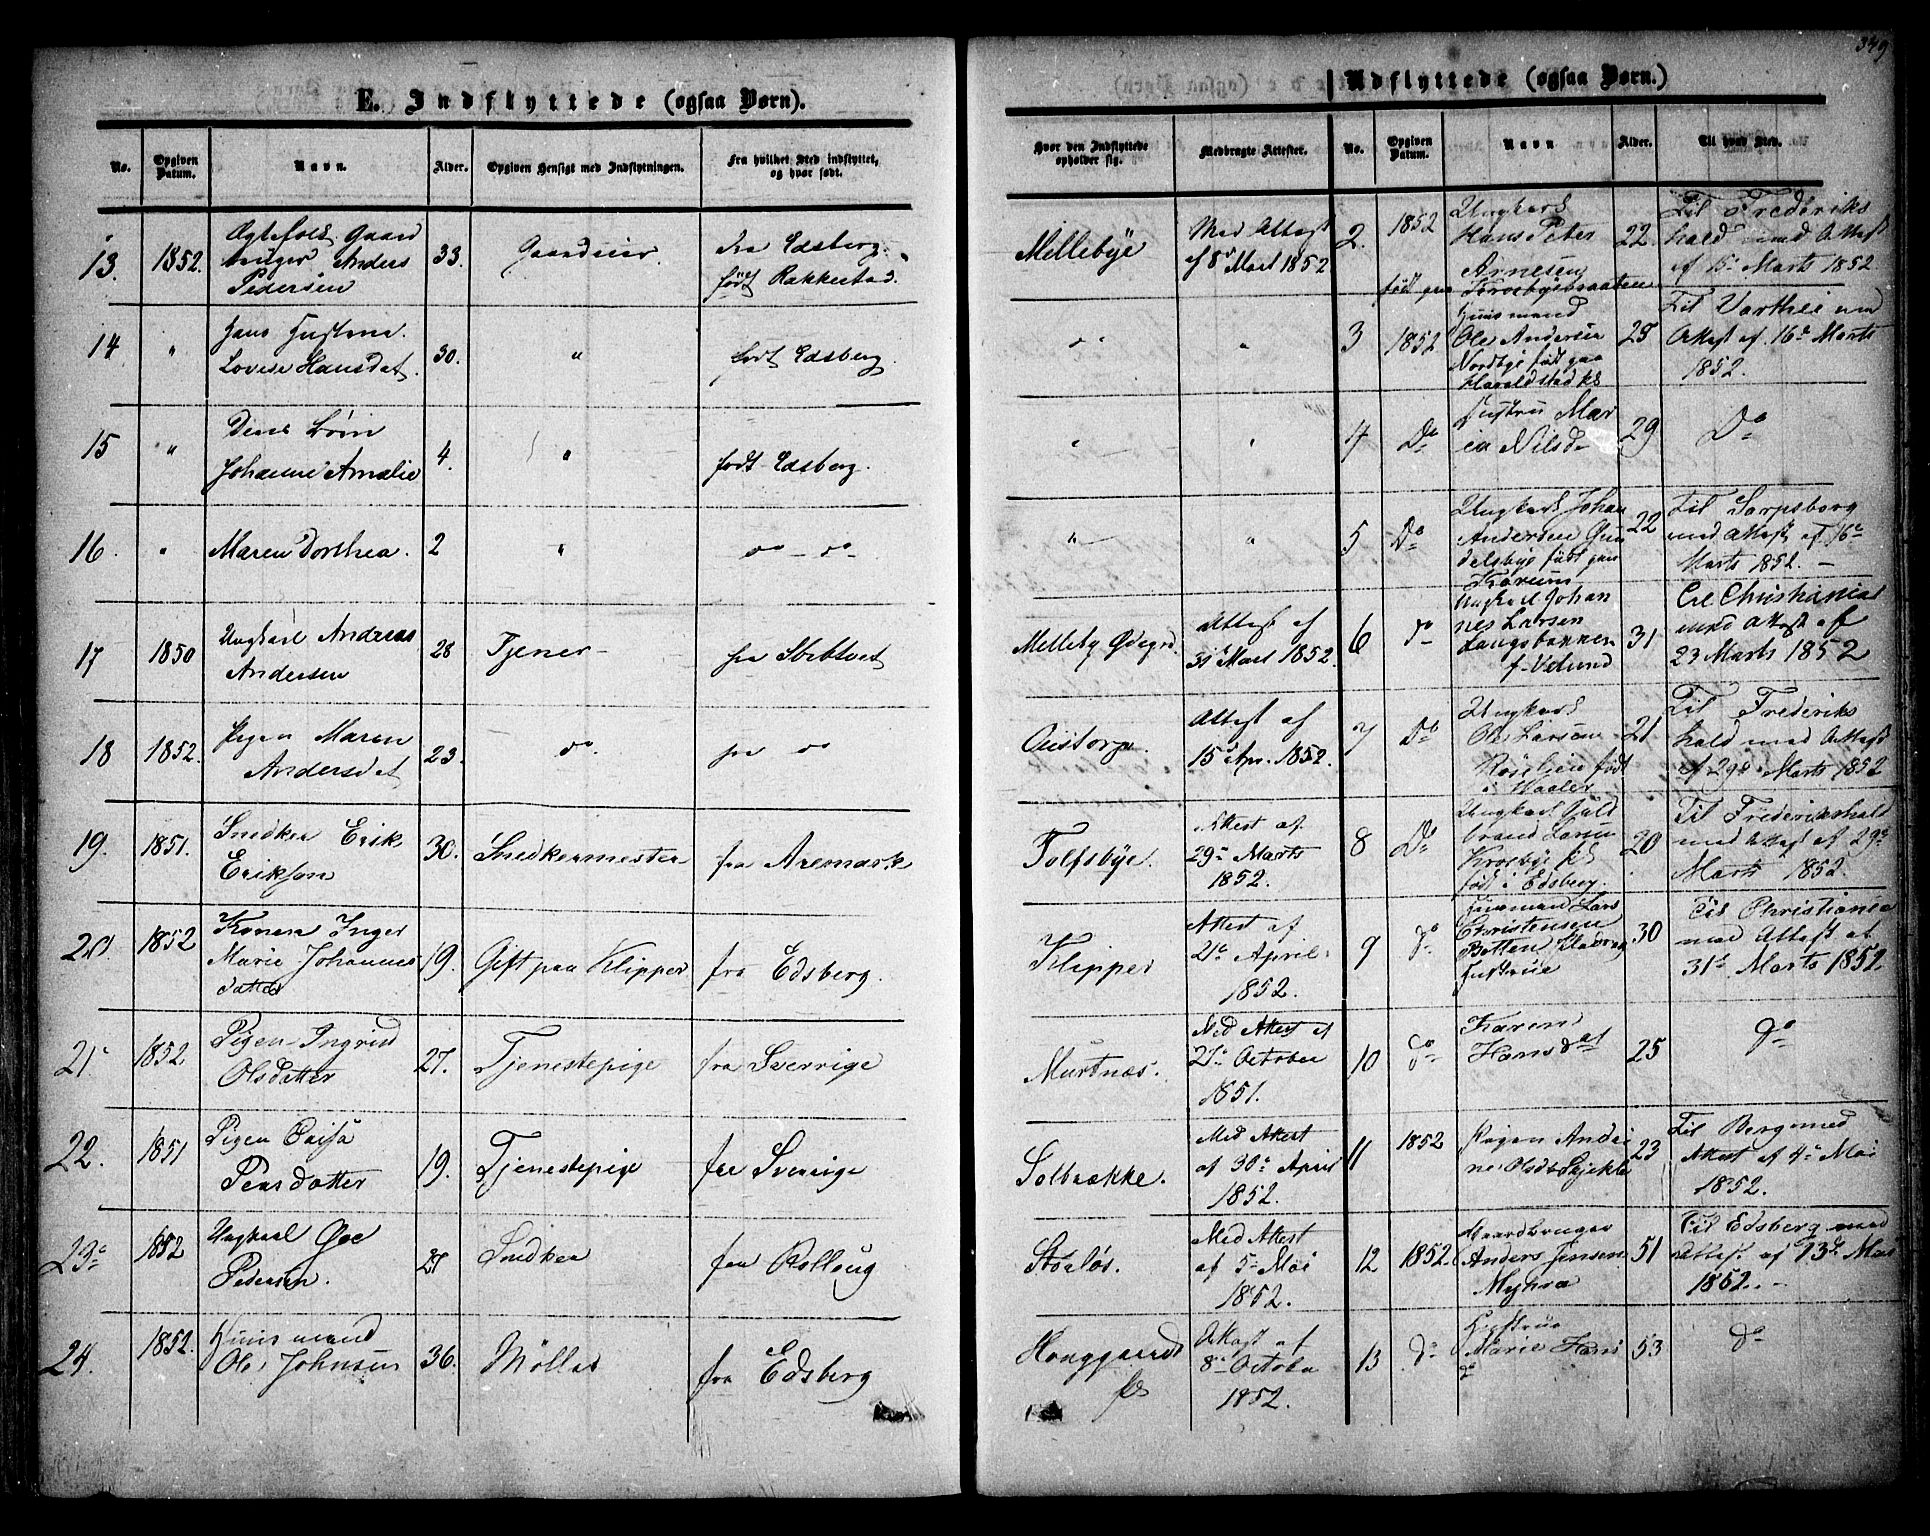 349
E. Indflyttede (ogsaa Børn).
No.
Opgiven Datum.
Navn.
Alder.
Opgiven Hensigt med Indflytningen.
Fra hvilket Sted indflyttet, og hvor født.
13. 1852. Ægtefolk Gaard
bruger Anders
Pedersen
33.
Gaardeier.
fra Edsberg.
født Rakkestad.
14 "
Hans Hustrue
Lovise Hansdat.
30.
"
født Edsberg.
15 "
Deres Børn
Johanne Amalie
4.
"
født Edsberg.
16. "
Maren Dorthea.
2
"
do - do
17 1850
Ungkarl Andreas
Andersen
28
Tjener
fra
18 1852.
Pigen Maren
Andersdat
23.
do.
fra do
19. 1851.
Snedker Erik
Erikson
30.
Snedkermester
fra Aremark
20. 1852
Konen Inger
Marie Johannes
datter
19.
Gift paa Klipper
fra Edsberg.
21. 1852
Pigen Ingrid
Olsdatter
27.
Tjenestepige
fra Sverrige
22. 1851
Pigen Caisa
Persdatter
19.
Tjenestepige
fra Sverrige
23. 1852
Ungkarl
Pedersen.
27
Snedker
fra Rolloug
24. 1852.
Huusmand
Ole Johnsen
36.
Möller
fra Edsberg
Udflyttede (ogsaa Børn.)
Hvor den Indflyttede opholder sig.
Medbragte Attester.
No.
Opgiven Datum.
Navn.
Alder.
Til hvad Sted.
Mellebye
Med Attest
af 8de Mart 1852.
2. 1852
Ungkarl
Hans Peter
Arnesen
født paa Krosbybraaten
22
Til Frederiks
hald med Attest
af 15de Marts 1852.
"
"
3 1852
Huusmand
Ole Andersen
Nordbye født paa
Haraldstad
25
Til Varthei med
Attest af 16de Marts
1852.
"
"
4 Do
Hustru Mar
ia Nilsd
29
Do
"
"
5 Do
Ungkarl Johan
Andersen Gun
delsbye født paa
22
Til Sarpsborg
med Attest af 16de
Marts 1852.
Melleby Ødegrd.
Attest af
31 Mart 1852.
6 do
Ungkarl Johan
nes Larsen
Langsbakken
31
Til Christiania
med Attest af
23 Marts 1852
Attest af
15de Apr. 1852.
7 Do
Ungkarl
Ole Larsen
født
i Waaler
21
Til Frederiks
hald med Attest
af 29de Marts 1852
Tolfsbye.
Attest af
29de Marts
1852.
8 Do
Ungkarl Guld
brand Larsen
Krosbye
født i Edsberg.
20
Til Frederikshald
med Attest af 29de
Marts 1852.
Klipper
Attest af
21de April
1852.
9 do
Huusmand Lars
Christensen
Botten
Hustrue
30
Til Christiania
med Attest af
31de Marts 1852.
Murtnæs.
Med Attest af
27de October
1851.
10 do
Karen
Hansdat
25
do
Solbrække.
Med Attest
af 30de April
1852.
11 1852
Pigen Andri
ne Olsd
23
Til Berg med
Attest af 4de Mai
1852.
Storløs.
Med Attest
af 5de Mai
1852.
12 1852.
Gaardbruger
Anders Jensen
Myhra
51
Til Edsberg med
Attest af 13de Mai
1852.
Honggaard
Attest af
8de October
1852.
13 do
Hustrue
Marie Hans
d
53
do